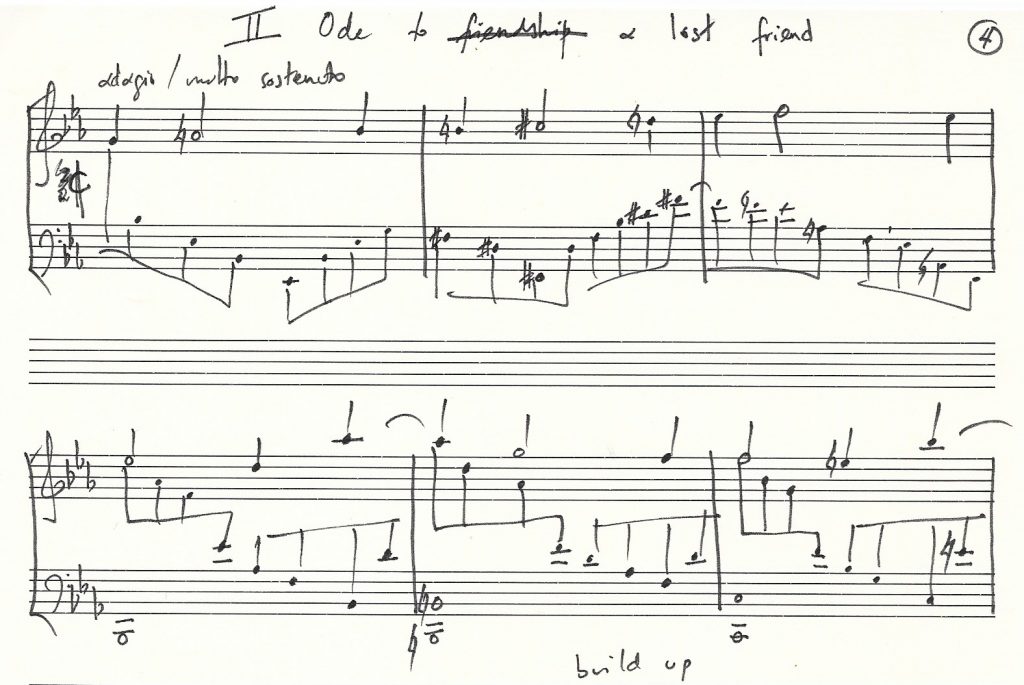 II Ode to friendship a lost friend 4
adagio / molto sostenuto
build up